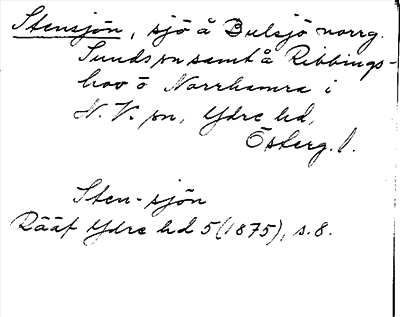 Stensjön, sjö å Bulsjö norrg.
Sunds sn samt å Ribbings-
hov o Norrhamra i
N. V. sn, Ydre hd,
Österg. l.
Sten-sjön
Rääf Ydre hd 5(1875), s. 8.